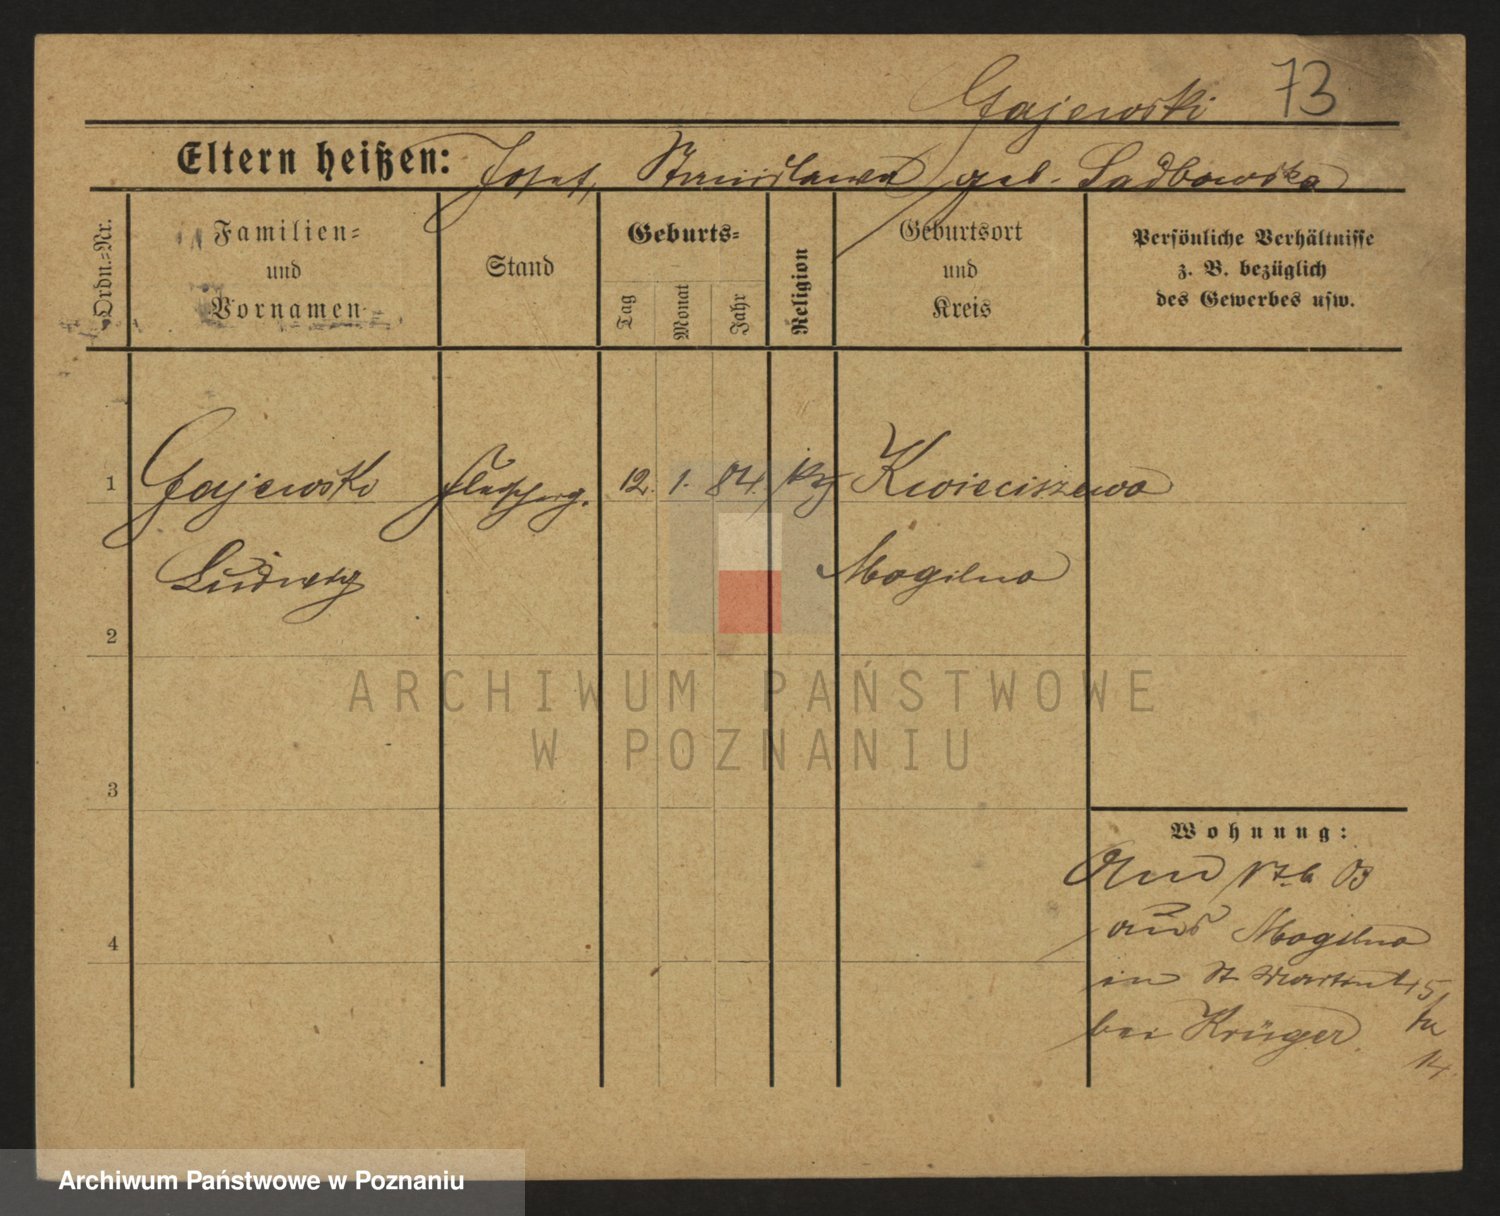 Gajewski 73
Eltern heißen: Josef, Stanislawa geb. Sadbowska
Ordn.-Nr.
Familien-
und
Vornamen
Stand
Geburts-
Tag
Monat
Jahr
Religion
Geburtsort
und
Kreis
Persönliche Verhältnisse
z. B. bezüglich
des Gewerbes usw.
1 Gajewski Fleischerg. 12. 1. 84. Kwieciszewo
Ludwig Mogilno
2
ARCHIWUM PAŃSTWOWE
W POZNANIU
3
Wohnung:
03
aus Mogilno
4
in St. Martinstr
bei Krüger
14.
Archiwum Państwowe w Poznaniu